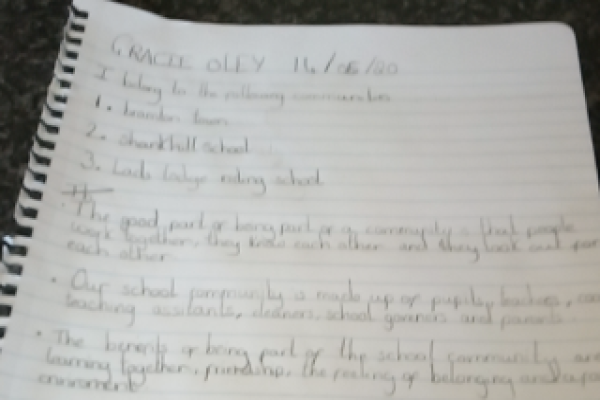 GRACIE OLEY 16/06/20
I belong to the following communities
1. brandon town
2. shankhill school
3. Lodge riding school
The good part of being part of a community is that people
work together, they know each other and they look out for
each other
• Our school community is made up of pupils, teachers,
teaching assistants, cleaners, school governors and parents
• The benefits of being part of the school community are
learning together, friendship, the feeling of belonging and
enviroment